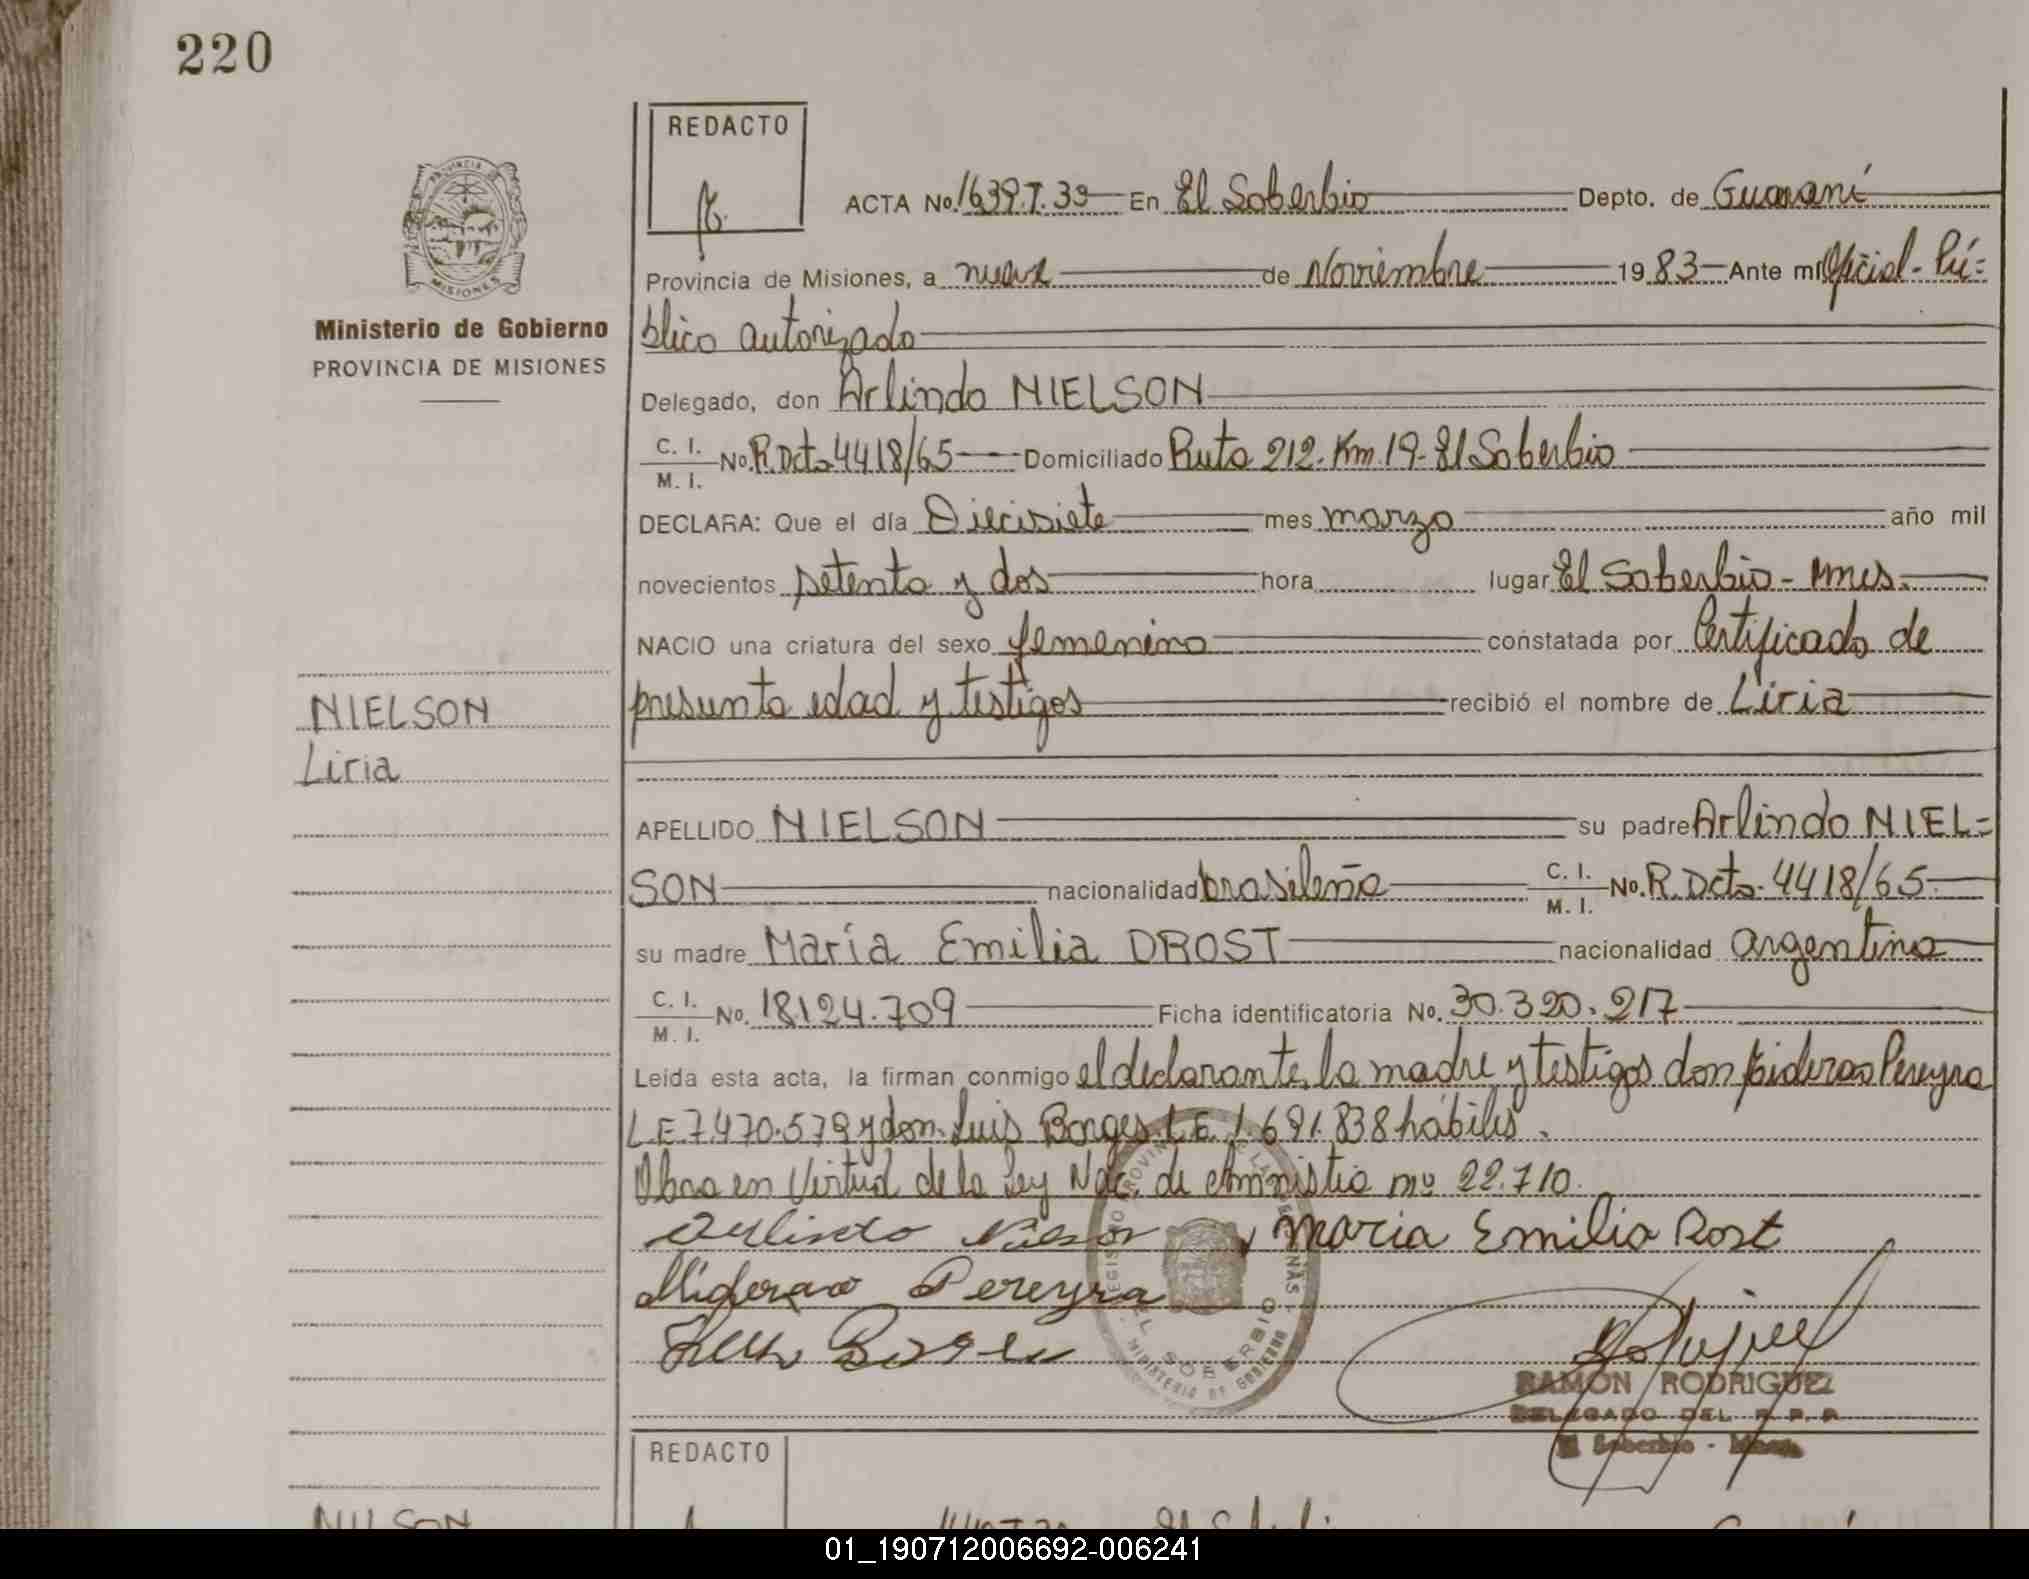 220
REDACTO
ACTA No. 1639.T.33 En El Soberbio Depto. de Guaraní
PROVINCIA DE
MISIONES
Provincia de Misiones, a nueve de Noviembre 1983 Ante mí Oficial Pú=
Ministerio de Gobierno
PROVINCIA DE MISIONES
blico autorizado
Delegado, don Arlindo NIELSON
C. I.
M. I. No. R. Dcto 4418/65 Domiciliado Ruta 212. Km. 19- El Soberbio
DECLARA: Que el día Diecisiete mes marzo año mil
novecientos setenta y dos hora lugar El Soberbio - Mnes.
NACIO una criatura del sexo femenino constatada por Certificado de
presunta edad y testigos recibió el nombre de Liria
NIELSON
Liria
APELLIDO NIELSON su padre Arlindo NIEL=
SON nacionalidad brasileña C. I.
M. I. No. R. Dcto. 4418/65
su madre María Emilia DROST nacionalidad argentina
C. I.
M. I. No. 18.124.709 Ficha identificatoria No. 30.320.217
Leída esta acta, la firman conmigo el declarante, la madre y testigos don Pereyra
L.E. 7.470.579 y don Luis Borges L.E. 1.691.838 hábiles.
Obra en Virtud de la Ley Nac. de Amnistia nº 22.710.
Arlindo Nielson Maria Emilia Rost
Pereyra
Borges
EL SOBERBIO
MINISTERIO DE GOBIERNO
RAMON RODRIGUEZ
DELEGADO DEL R. P. P.
El Soberbio - Mnes.
REDACTO
01_190712006692-006241